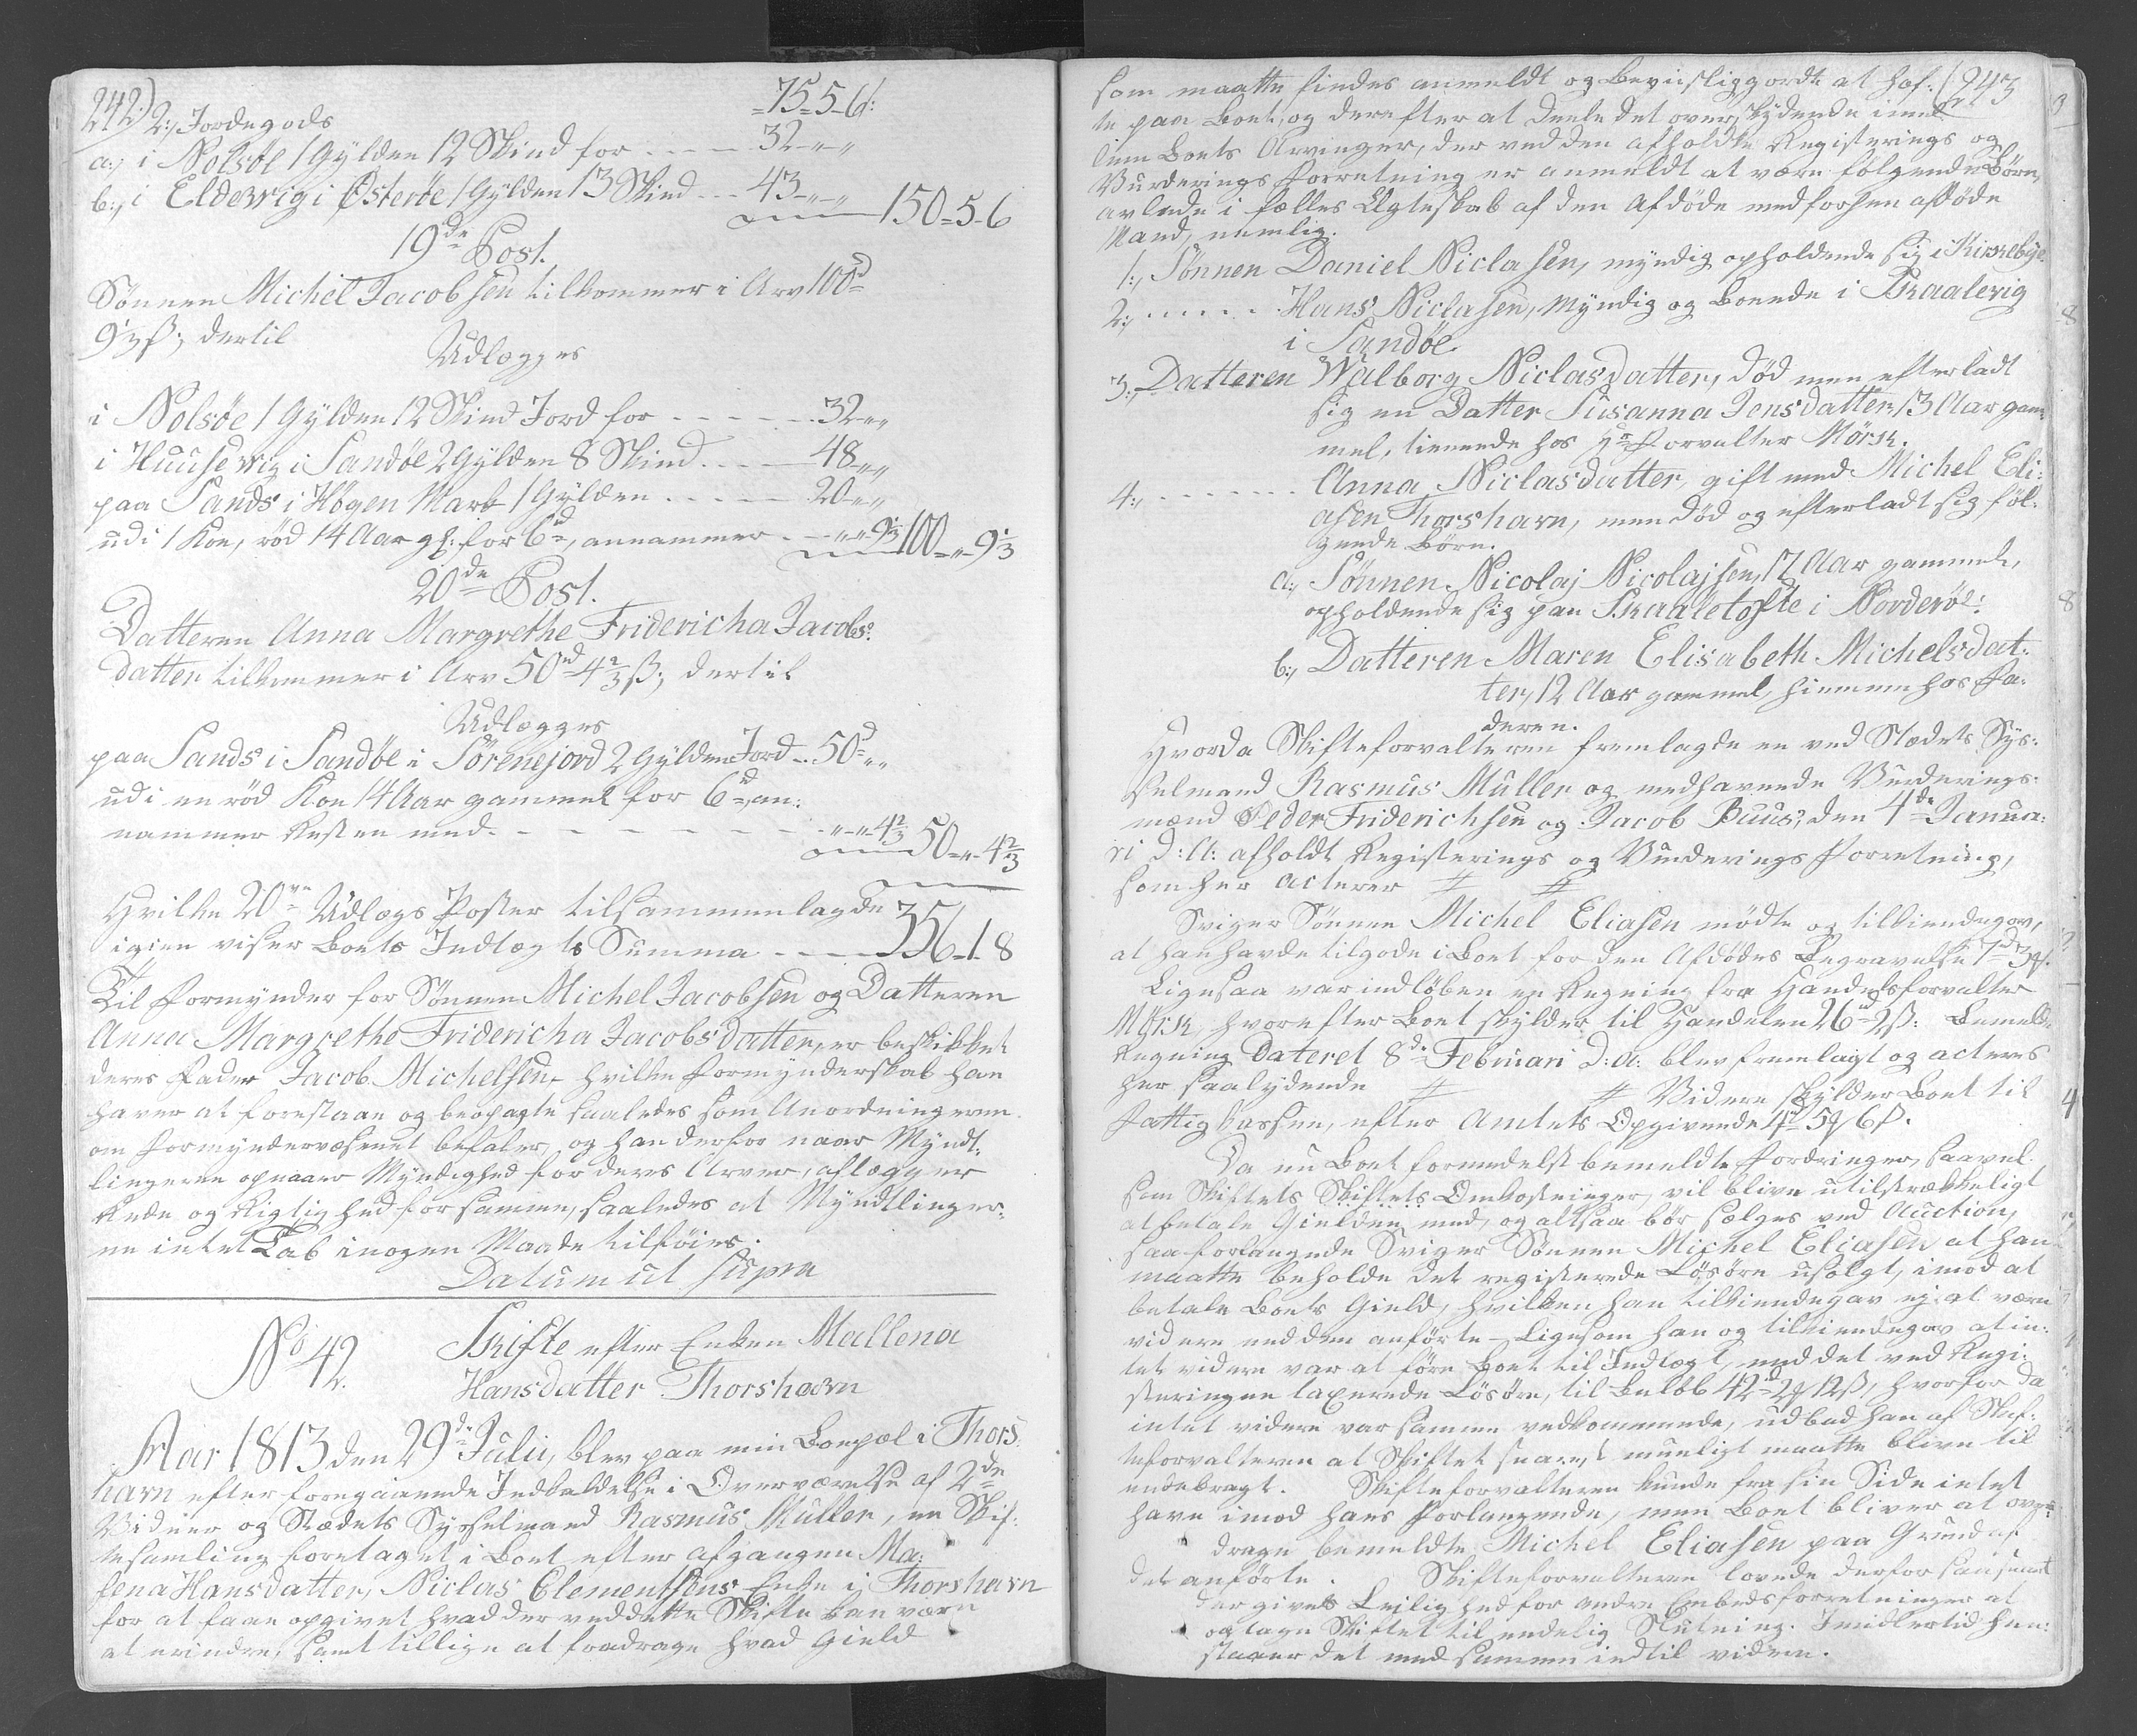 242.) 2:, Jordegods -75-5-6d:
a:, i Nolsöe 1 Gylden 12 Skind for - - - - 32 - „ - „
b:, i Eldevvig i Österöe 1 Gylden 13 Skind - - - 43 - „ - „ 150-5-6
19de Post.
Sönnen Michel Jacobsen tilkommer i Arv 100d
9⅓ß; dertil
Udlægges
i Nolsöe 1 Gylden 12 Skind Jord for - - - - - 32 - „ - „
i Huusevvig i Sandöe 2 Gylden 8 Skind - - - - 48 - „ „
paa Sands i Högen Mark 1 Gylden - - - - - 20 - „ „
udi 1 Koe, röd 14 Aar gl: for 6d, annammer - - „ „ 9⅓ 100 - „ - 9⅓
20de Post.
Datteren Anna Margrethe Fridericha Jacobs:
datter tilkommer i Arv 50d 4⅔ß; dertil
Udlægges
paa Sands i Sandöe i Sörenejord 2 Gylden Jord - 50d „ „
udi en röd Koe 14 Aar gammel for 6d, an:
nammer Resten med - - - - - - - „ - „ - 4⅔ 50 - „ - 4⅔
Hvilke 20ve Udlægs Poster tilsammenlagde
igien viser Boets Indtægts Summa - - - - 356-1-8
Til Formynder for Sönnen Michel Jacobsen og Datteren
Anna Margrethe Fridericha Jacobsdatter, er beskikket
deres Fader Jacob Michelsen, hvilke Formynderskab han
haver at forestaae og beopagte saaledes som Anordningerne
om Formyndervæsenet befaler, og han derfor naar Mynd:
lingerne opnaaer Myndighed for deres Arver, aflægger
Rede og Rigtighed for samme, saaledes at Myndtlinger:
ne intet Tab i nogen Maade tilföies.
Datum ut supra
No 42. Skifte efter Enken Mallena
Hansdatter Thorshavn
Aar 1813 den 29de Julii, blev paa min Boepæl i Thors:
havn efter foregaaende Indkaldelse i Overværelse af 2de
Vidner og Stædets Sysselmand Rasmus Müller, en Skif:
tesamling foretaget i Boet efter afgangen Ma:
lena Hansdatter, Niclas Clementsens Enke i Thorshavn
for at faae opgivet hvad der ved dette Skifte kan være
at erindre, samt tillige at fradrage hvad Gield
som maatte findes anmeldt og beviisliggiordt at haf: (243
te paa Boet, og derefter at deele det overskydende imel
lem Boets Arvinger, der ved den afholdte Registerings og
Vurderings Forretning er anmeldt at være følgende Börn,
avlede i fælles Ægteskab af den Afdöde med forhen afdöde
Mand, nemlig.
1:, Sönnen Daniel Niclasen, myndig opholdende sig i Kirkebye
2:, - - - - - Hans Niclasen, myndig og boende i Skaalevig
i Sandöe
3:, Datteren Walborg Niclasdatter, död men efterladt
sig en Datter Susanna Jensdatter, 13 Aar gam
mel, tienende hos Hr Forvalter Mörk.
4:, - - - - - - - Anna Niclasdatter, gift med Michel Eli:
asen Thorshavn, men död og efterladt sig föl:
gende Börn.
a:, Sönnen Nicolaj Nicolajsen, 17 Aar gammel,
opholdende sig paa Skaaletofte i Norderöe:
b:, Datteren Maren Elisabeth Michelsdat:
ter, 12 Aar gammel, hiemme hos Fa:
deren.
Hvorda Skifteforvalteren fremlagde en ved Stædets Sys:
selmand Rasmus Müller og medhavende Vurderings:
mænd Peder Friderichsen og Jacob Buus, den 4de Janua:
ri d: A: afholdt Registerings og Vurderings Forretning,
som her acteres # #
Sviger Sönnen Michel Eliasen mödte og tilkiendegav,
at han havde tilgode i Boet for den Afdödes Begravelse 7d 3#.
Ligesaa var indlöben en Regning fra Handelsforvalter
Mörk, hvorefter Boet skylder til Handelen 26d 2ß: Bemeldte
Regning dateret 8de Februari d: a: blev fremlagt og acteres
her saalydende # # Videre skylder Boet til
Fattig Cassen, efter Amtets Opgivende 1d 5# 6ß.
Da nu Boet formedelst bemeldte Fordringer, saavel
som Skiftets Skiftets Omkostninger, vil blive utilstrækkeligt
at betale Gielden med, og altsaa bör sælges ved Auction,
saa forlangede Sviger Sönnen Michel Eliasen at han
maatte beholde det registerede Lösöre usolgt, imod at
betale Boets Gield, hvilken han tilkiendegav ej at være
videre end den anförte - Ligesom han og tilkiendegav at in:
tet videre var at före Boet til Indtægt, end det ved Regi:
steringen taxerede Lösöre, til Belöb 42d 2# 12ß, hvorfor da
intet videre var samme vedkommende, udbad han af Skif:
teforvalteren at Skiftet snarest mueligt maatte blive til
endebragt. Skifteforvalteren kunde fra sin Side intet
have imod hans Forlangende, men Boet bliver at over:
drage bemeldte Michel Eliasen paa Grund af
det anförte. Skifteforvalteren lovede derfor saasnart
der gives Leilighed for andre Embedsforretninger at
optage Skiftet til endelig Slutning. Imidlertid hen:
staaer det med samme indtil videre.